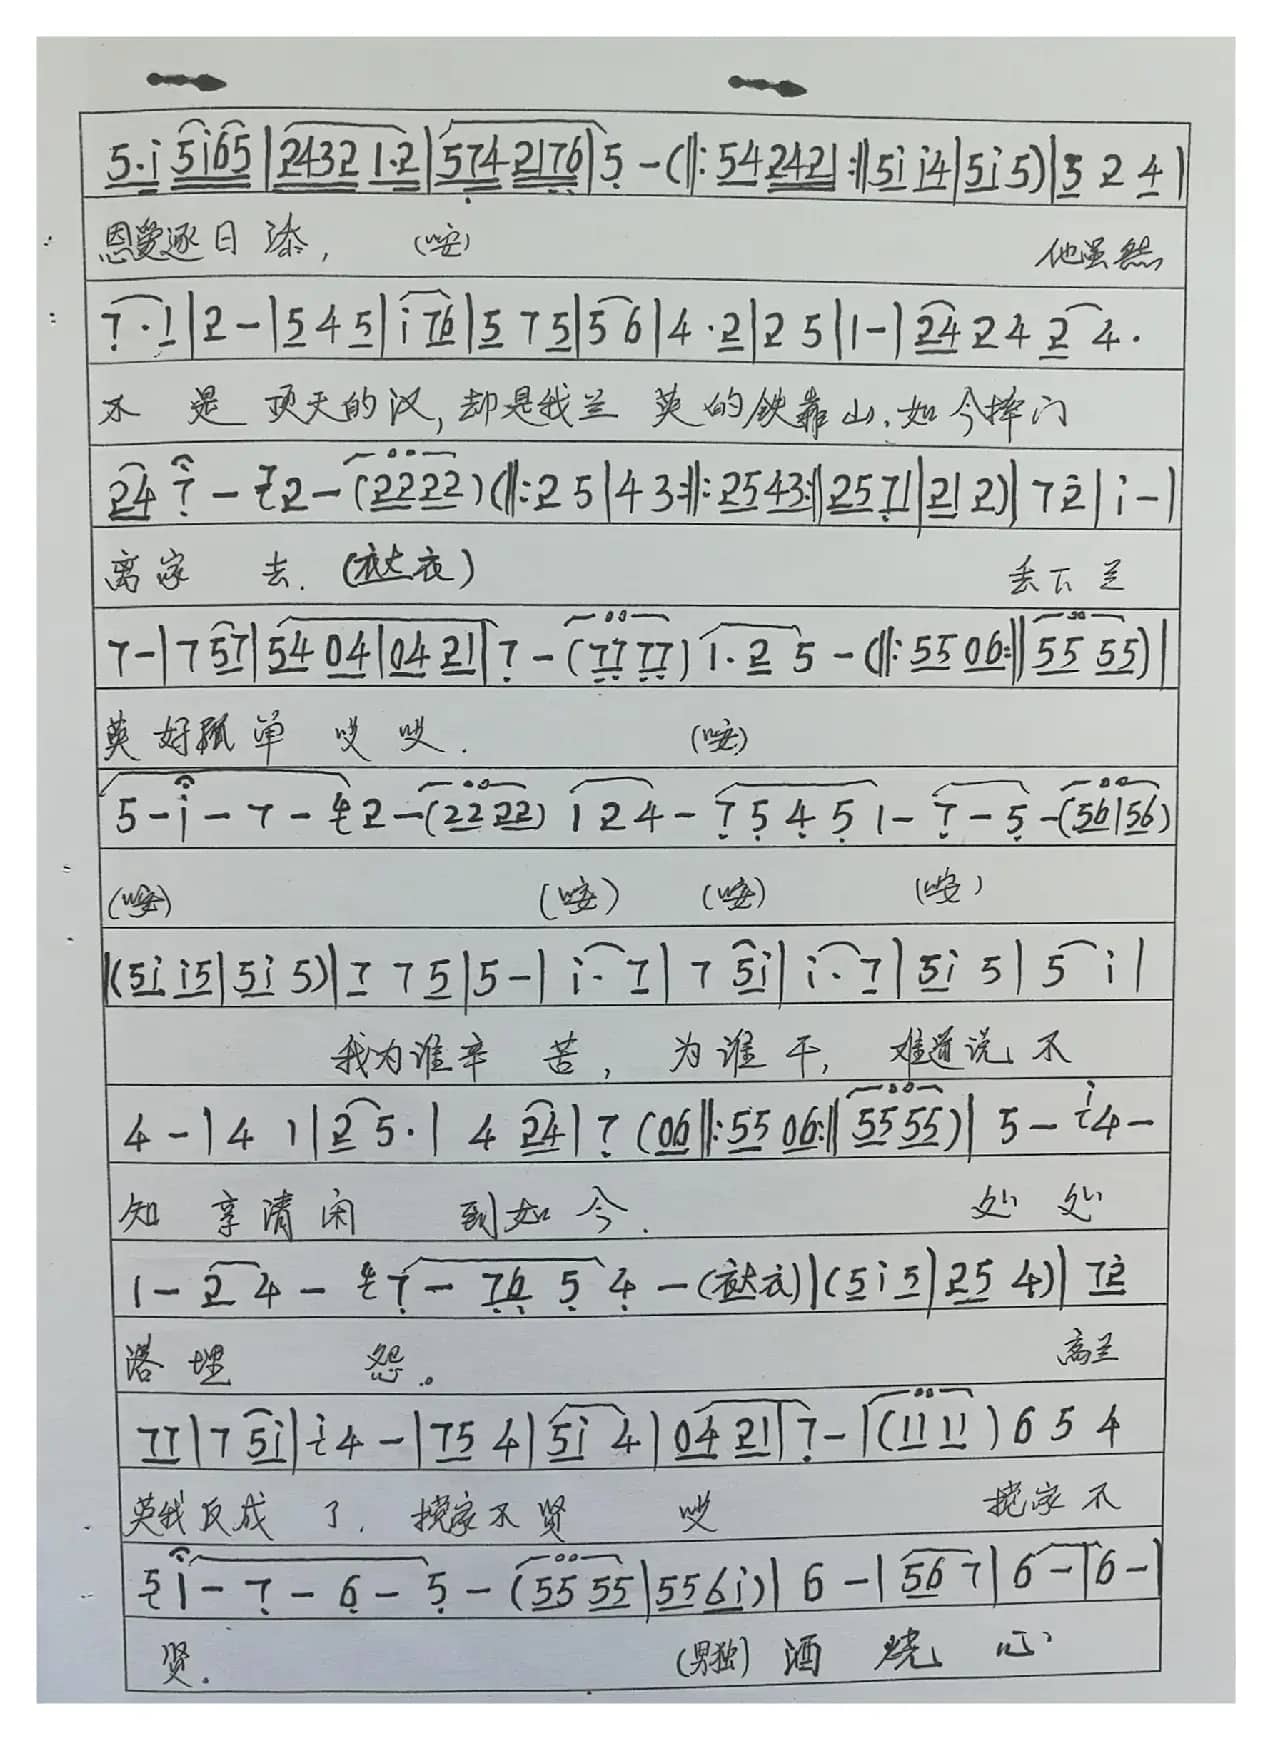 5·i 5i65|2432 1·2|574 2176|5-(‖:54 2421:‖5i i4|5i 5)|3 2 4|
恩爱逐日添,(唉) 他虽然
7·1|2-|5 4 5|i 76|5 7 5|5 6|4·2|2 5|1-|24 24 2 4·
不是顶天的汉,却是我兰英的铁靠山.如今摔门
24 7-2-(2222)(‖:2 5|4 3:‖:25 43:‖25 71|21 2)|7 2|i-|
离家去.(衣大衣) 丢下兰
7-|7 57|54 04|04 21|7-(77 77)1·2 5-(‖:55 06:‖55 55)|
英好孤单哎哎.(唉)
5-i-7-2-(22 22)1 2 4-7 5 4 5 1-7-5-(56|56)
(唉)(唉)(唉)(唉)
|(5i i5|5i 5)|7 7 5|5-|i·7|7 5i|i·7|5i 5|5 i|
我为谁辛苦,为谁干,难道说不
4-|4 1|2 5·|4 24|7(06‖:55 06:‖55 55)|5-4-
知享清闲到如今. 处处
1-2 4-7-76 5 4-(衣大衣)|(5 i 5|25 4)|72
落埋怨。 高兰
77|7 5i|4-|75 4|5i 4|04 21|7-|(11 11)6 5 4
英我反成了.搅家不贤哎 搅家不
i-7-6-5-(55 55|55 6i)|6-|56 7|6-|6-|
贤.(男独)酒烧心